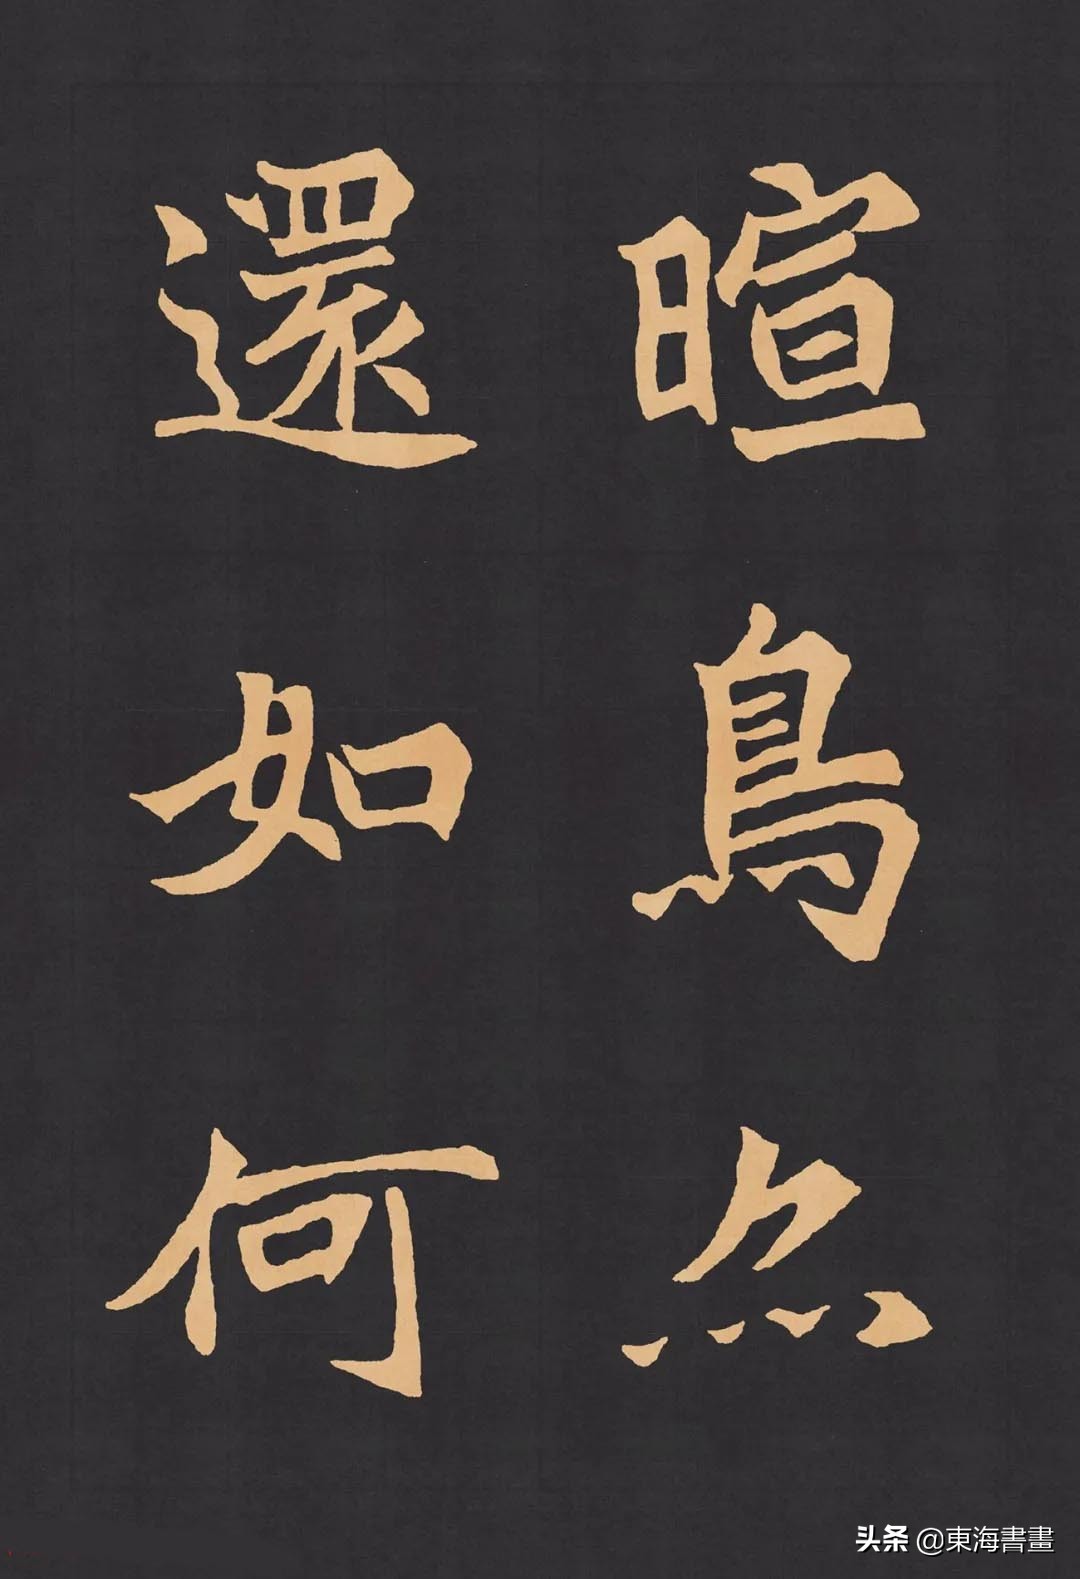 暄鳥
還如何
头条 @東海書畫